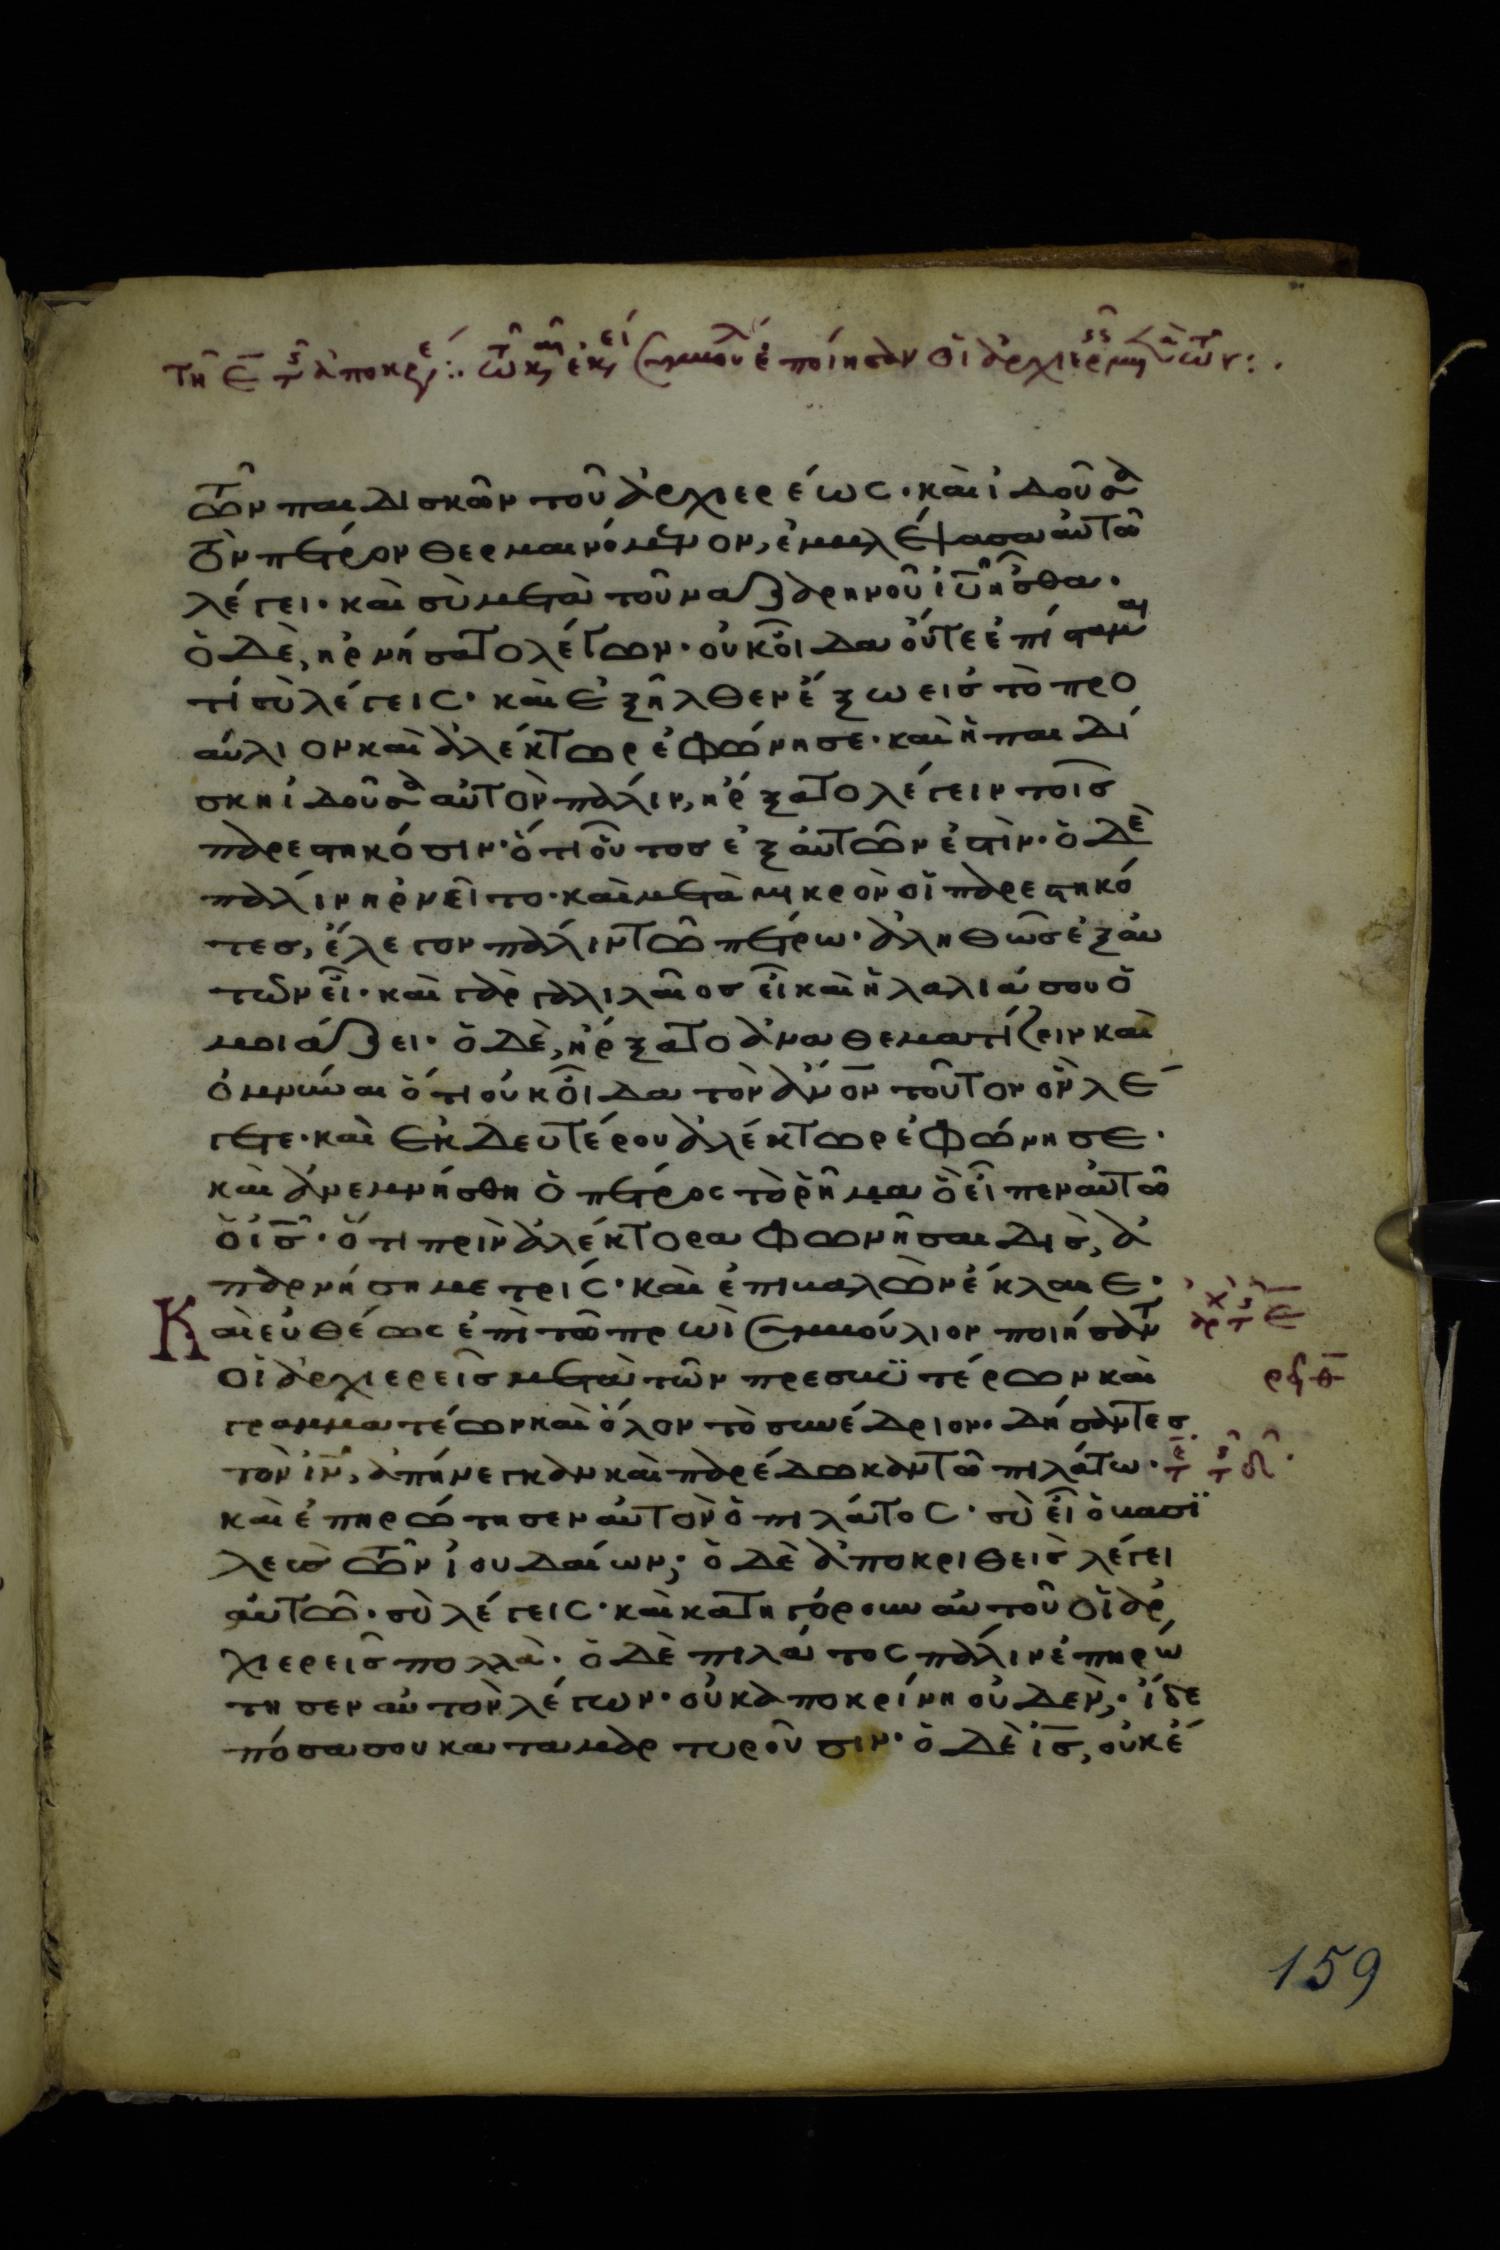 τῆ ε̅ τῆς ἀποκρε τῶ καιρῶ ἐκεί συμβούλ ἐποίησαν οἱ ἀρχιερ μετὰ τῶν
τῶν παιδισκῶν τοῦ ἀρχιερέως· καὶ ἰδοῦσα
τὸν πέτρον θερμαινόμενον, ἐμβλέψασα αὐτῶ
λέγει· καὶ σὺ μετὰ τοῦ ναζαρηνοῦ ιυ̅ ἦσθα·
ὁ δὲ, ἠρνήσατο λέγων· οὐκ οἶδα οὔτε ἐπίσταμαι
τί σὺ λέγεις· καὶ ἐξῆλθεν ἔξω εἰς τὸ προ
αύλιον καὶ ἀλέκτωρ ἐφώνησε· καὶ ἡ παιδί
σκη ἰδοῦσα αὐτὸν πάλιν, ἤρξατο λέγειν τοῖς
παρεστηκόσιν· ὅτι οὗτος ἐξ αὐτῶν ἐστὶν· ὁ δὲ
πάλιν ἠρνεῖτο· καὶ μετὰ μικρὸν οἱ παρεστηκό
τες, ἔλεγον πάλιν τῶ πέτρω· ἀληθῶς ἐξ αὐ
τῶν εἶ· καὶ γὰρ γαλιλαῖος εἶ καὶ ἡ λαλιά σου ὁ
μοιάζει· ὁ δὲ, ἤρξατο ἀναθεματίζειν καὶ
ὀμνύναι ὅτι οὐκ οἶδα τὸν α̅ν̅ο̅ν τοῦτον ὃν λέ
γετε· καὶ ἐκ δευτέρου ἀλέκτωρ ἐφώνησε·
καὶ ἀνεμνήσθη ὁ πέτρος τὸ ῥῆμα ὃ εἶπεν αὐτῶ
ὁ ις̅· ὅτι πρὶν ἀλέκτορα φωνῆσαι δὶς, ἀ
παρνήση με τρίς· καὶ ἐπιβαλὼν ἔκλαιε·
Καὶ εὐθέως ἐπὶ τὸ πρωῒ συμβούλιον ποιήσαντ ἀρχ τ ε̅
οἱ ἀρχιερεῖς μετὰ τῶν πρεσβϋτέρων καὶ
γραμματέων καὶ ὅλον τὸ συνέδριον· δήσαντες
τὸν ιν̅, ἀπήνεγκαν καὶ παρέδωκαν τῶ πιλάτω·
καὶ ἐπηρώτησεν αὐτὸν ὁ πιλάτος· σὺ εἶ ὁ βασϊ
λεὺς τῶν ἰουδαίων; ὁ δὲ ἀποκριθεὶς λέγει
αὐτῶ· σὺ λέγεις· καὶ κατηγόρουν αὐτοῦ οἱ ἀρ
χιερεῖς πολλὰ· ὁ δὲ πιλάτος πάλιν ἐπηρώ
τησεν αὐτὸν λέγων· οὐκ ἀποκρίνη οὐδὲν; ἴδε
πόσα σου καταμαρτυροῦσιν· ὁ δὲ ις̅, οὐκέ
159